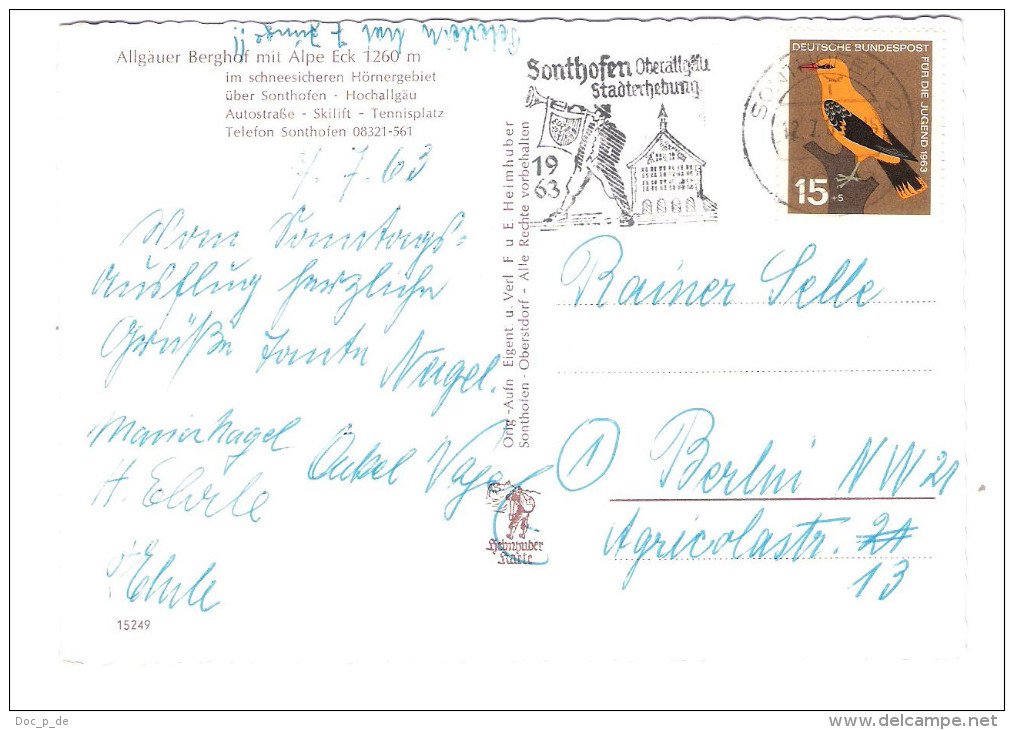 Allgäuer Berghof mit Alpe Eck 1260 m
im schneesicheren Hörnergebiet
über Sonthofen - Hochallgäu
Autostraße - Skilift - Tennisplatz
Telefon Sonthofen 08321-561
7. 7. 63
Vom Sonntags-
Ausflug herzliche
Grüße Tante
Nagel.
Maria Nagel
Onkel
H. Ehrle
Ehrle
15249
hat 7 Junge!!
Orig.-Aufn Eigent. u. Verl F u E Heimhuber
Sonthofen - Oberstdorf - Alle Rechte vorbehalten
Heimhuber
Karte
Sonthofen Oberallgäu
Stadterhebung
19
63
SONTHOFEN 2
DEUTSCHE BUNDESPOST
FÜR DIE JUGEND 1963
15 +5
Rainer Selle
1 Berlin NW 21
Agricolastr. 21
13
Doc_p_de